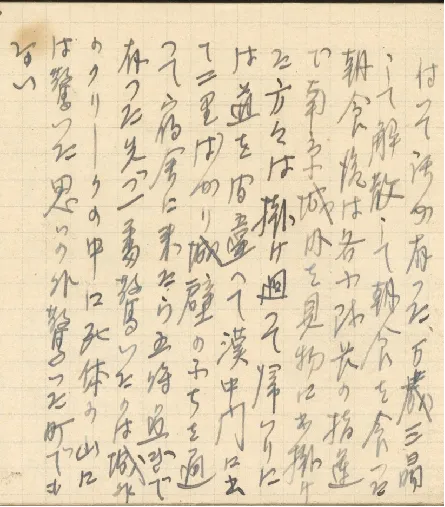 付いて話が有った、万歳三唱
して解散して朝食を食った
朝食後は各小隊長の指連
で南京城外を見物に出掛け
た方々は掛け廻って帰りに
は道を間違って漢中門に出
て二里ばかり城壁のふちを廻
って宿舎に来たら五時近まで
有った先づ一番驚いたのは城外
のクリークの中に死体の山に
は驚いた思いの外驚いた町でも
ない